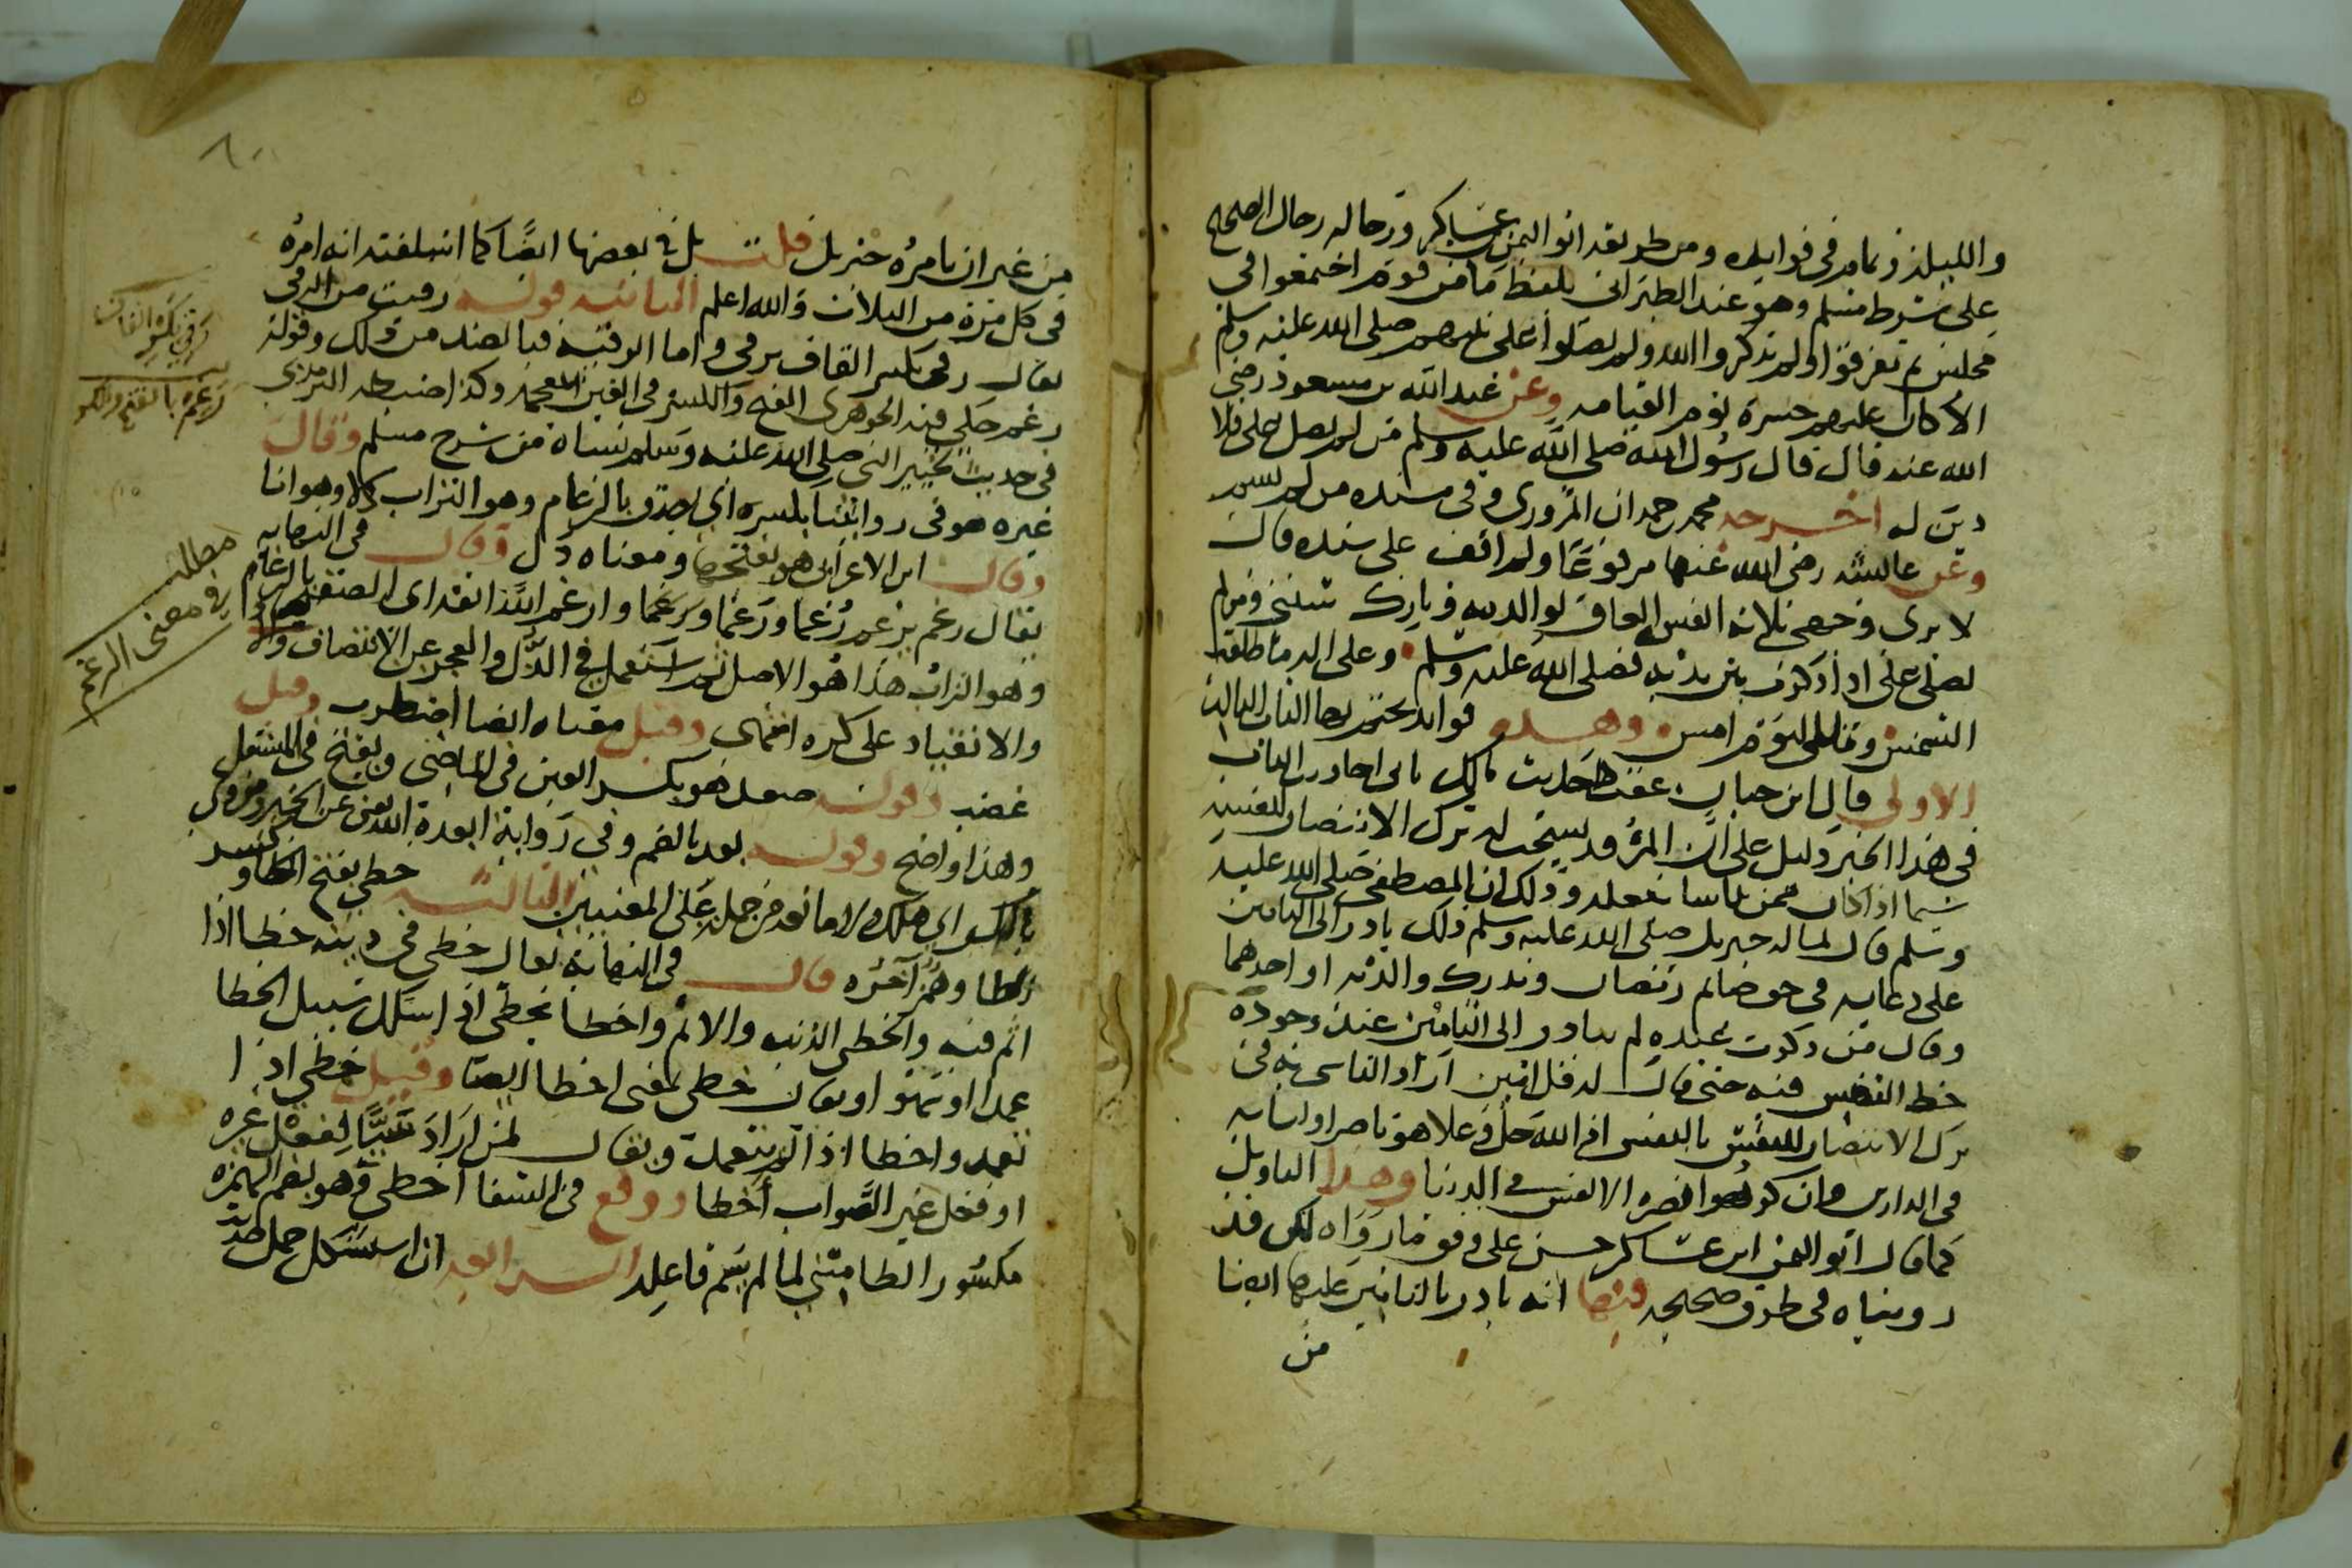 والطبراني وتمام في فوايده ومن طريقه ابو اليمن بن عساكر ورجاله رجال الصحيح
على شرط مسلم وهو عند الطبراني بلفظ ما من قوم اجتمعوا في
مجلس ثم تفرقوا ولم يذكروا الله ولم يصلوا على نبيهم صلى الله عليه وسلم
الا كان عليهم حسرة يوم القيامه وعن عبد الله بن مسعود رضي
الله عنه قال قال رسول الله صلى الله عليه وسلم من لم يصل علي فلا
دين له اخرجه محمد بن حمدان المروزي وفي سنده من لم يسم
وعن عائشه رضي الله عنها مرفوعا ولم اقف على سنده قالت
لا يرى وجهي ثلاثه انفس العاق لوالديه وتارك سنتي ومن لم
يصلي علي اذا ذكرت بين يديه فصلى الله عليه وسلم وعلى اله ما طلعت
الشمس وما اليوم امس وهذه فوايد نختم بها الباب الثالث
الاولى قال ابن حبان عقب حديث مالك بن الحويرث الثابت
في هذا الخبر دليل على ان المرؤ قد يستحب له ترك الانتصار لنفسه
سيما اذا كان ممن يتأسا بفعله وذلك ان المصطفى صلى الله عليه
وسلم قال لما قاله جبريل صلى الله عليه وسلم ذلك بادر الى التامين
على دعايه في حق صايم رمضان ومدرك والديه او احدهما
وقال من ذكرت عنده لم يبادر الى التامين عند وجوده
حظ النفس فيه حتى قال له قل امين اراد التاسي به في
ترك الانتصار للنفس بالنفس اذ الله جل وعلا هو ناصر اوليايه
في الدارين وان كرهوا نصرة الانفس في الدنيا وهذا التاويل
كما قال ابو اليمن ابن عساكر حسن على وفق ما رواه لكن قد
رويناه في طرق صحيحه فيها انه بادر بالتامين عليها ايضا
من
من غير ان يامره جبريل قلت بل في بعضها ايضا كما اسلفته انه امره
في كل مرة من الثلاث والله اعلم الثانيه قوله رقيت من الرقي
يقال رقي بكسر القاف يرقى واما الرقيه فبالضد من ذلك وقوله
رغم حكى فيه الجوهري الفتح والكسر في الغين المعجمه وكذا ضبطه النووي
في حديث تخيير النبي صلى الله عليه وسلم نساه من شرح مسلم وقال
غيره هو في روايتنا بكسره اي لصق بالرغام وهو التراب ذلا وهوانا
وقال ابن الاعرابي هو بفتحها ومعناه ذل وقال في النهايه
يقال رغم يرغم رغما ورغما ورغما وارغم الله انفه اي الصقه بالرغام
وهو التراب هذا هو الاصل ثم استعمل في الذل والعجز عن الانتصاف
والانقياد على كره انتهى وقيل معناه ايضا اضطرب وقيل
غضب وقوله صعد هو بكسر العين في الماضي وبفتح في المستقبل
وهذا واضح وقوله بعد بالضم وفي رواية ابعده الله يعني عن الخير
بالكسر اي هلك ولا مانع من حمله على المعنيين الثالثه خطي بفتح الخا وكسر
الطا وهمز آخره قال في النهاية يقال خطي في دينه خطا اذا
اثم فيه والخطي الذنب والاثم واخطا يخطي اذا سلك سبيل الخطا
عمدا او سهوا ويقال خطي بمعنى اخطا ايضا وقيل خطي اذا
تعمد واخطا اذا لم يتعمد ويقال لمن اراد شيئا ففعل غيره
او فعل غير الصواب أخطا ووقع في الشفا اخطي وهو بضم الهمزه
مكسور الطا مبني لما لم يسم فاعله الرابعه ان استشكل حمل حديث
رقي بكسر القاف
رغم بالفتح والكسر
مطلب
في معنى الرغم